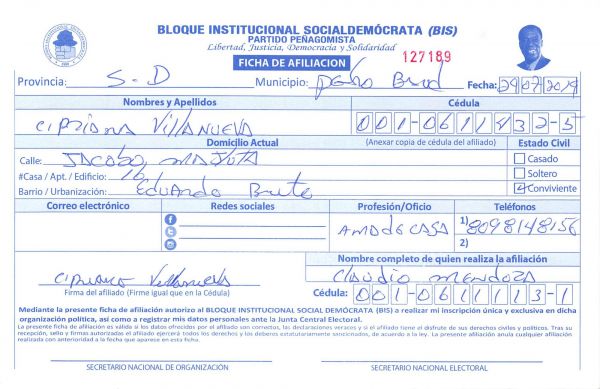 BLOQUE INSTITUCIONAL SOCIALDEMÓCRATA (BIS)
PARTIDO PEÑAGOMISTA
Libertad, Justicia, Democracia y Solidaridad
FICHA DE AFILIACION 127189
Provincia: S-D Municipio: Pedro Brand Fecha: 29/07/2019
Nombres y Apellidos Cédula
CIPRIANA VILLANUEVA 001-0611432-5
Domicilio Actual (Anexar copia de cédula del afiliado) Estado Civil
Calle: JACOBO MAJUTA Casado
#Casa / Apt. / Edificio: 16 Soltero
Barrio / Urbanización: Eduardo Brito Conviviente
Correo electrónico Redes sociales Profesión/Oficio Teléfonos
AMA de CASA 1) 8098148156
2)
Nombre completo de quien realiza la afiliación
Villanueva CLAUDIO MENDOZA
Firma del afiliado (Firme igual que en la Cédula) Cédula: 001-0611113-1
Mediante la presente ficha de afiliación autorizo al BLOQUE INSTITUCIONAL SOCIAL DEMÓCRATA (BIS) a realizar mi inscripción única y exclusiva en dicha
organización política, así como a registrar mis datos personales ante la Junta Central Electoral.
La presente ficha de afiliación es válida si los datos ofrecidos por el afiliado son correctos, las declaraciones veraces y si el afiliado tiene el disfrute de sus derechos civiles y políticos. Tras su
recepción, sello y firmas autorizadas el afiliado ejercerá todos los derechos y los deberes estatutariamente sancionados, de acuerdo a la ley. La presente afiliación anula cualquier afiliación
realizada con anterioridad a la fecha que aparece en esta ficha.
SECRETARIO NACIONAL DE ORGANIZACIÓN SECRETARIO NACIONAL ELECTORAL